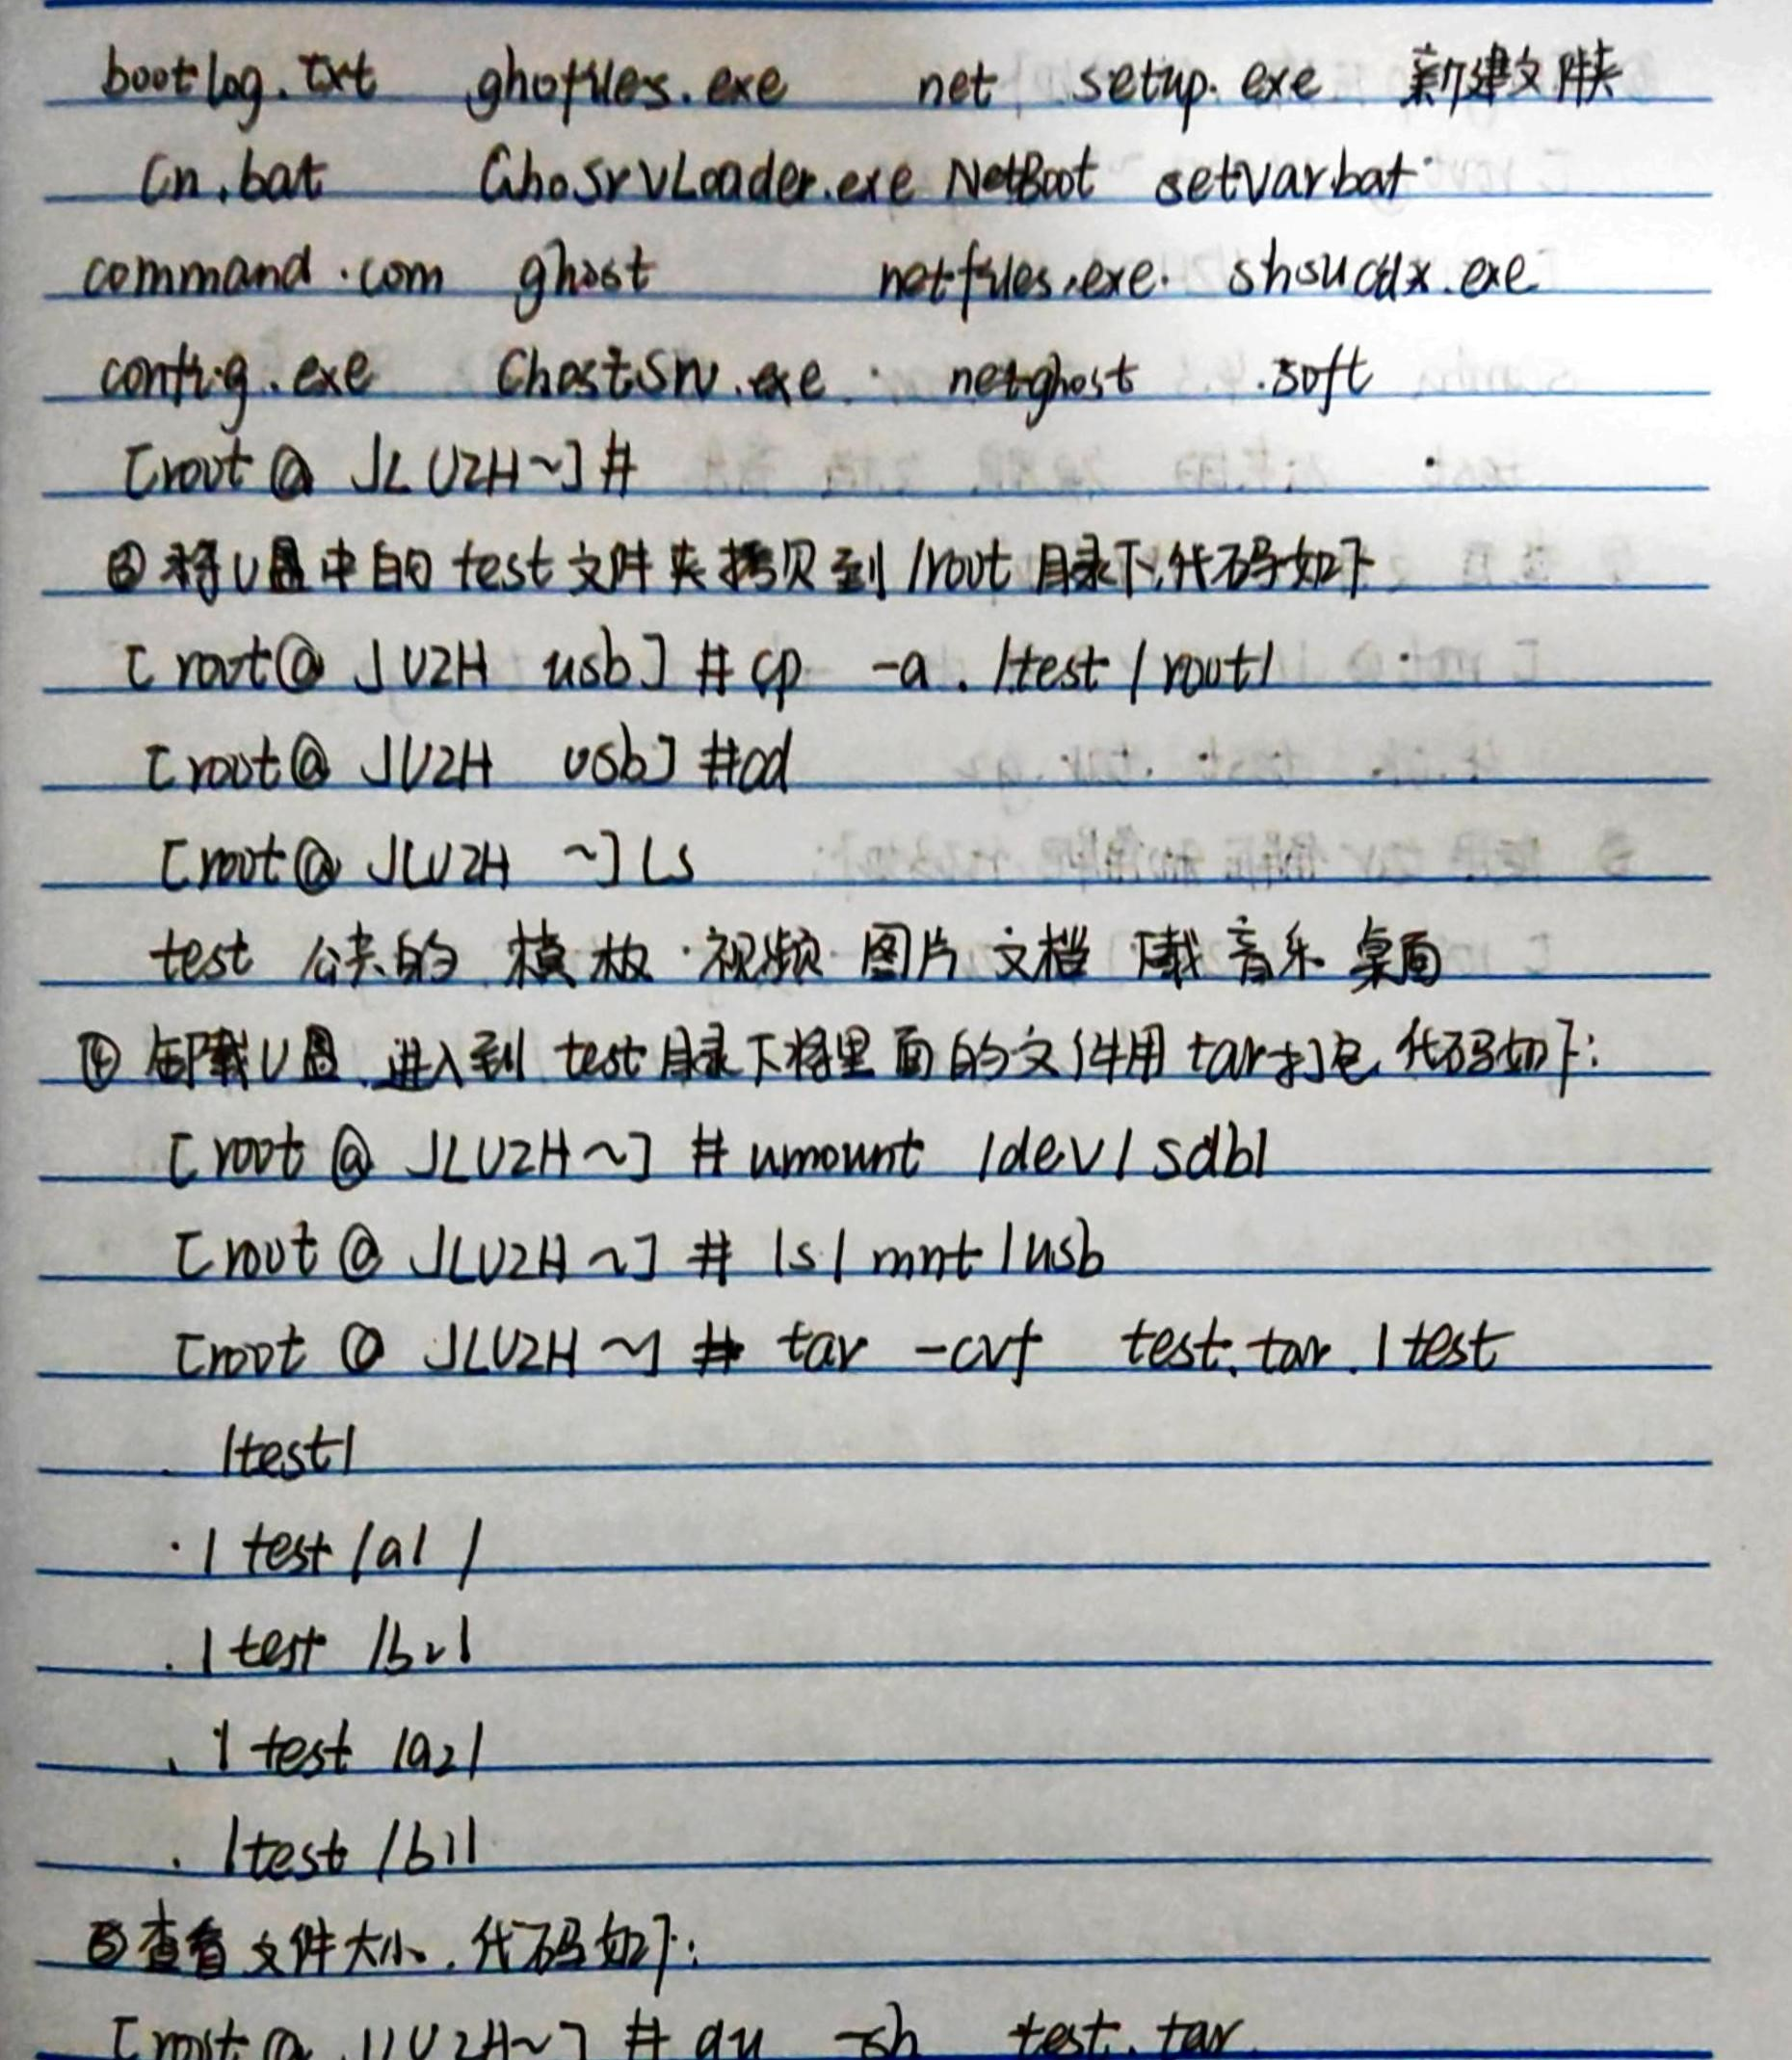 bootlog.txt ghofiles.exe net setup.exe 新建文件夹
Cn.bat GhoSrvLoader.exe NetBoot setvar.bat
command.com ghost netfiles.exe. shsucdx.exe
config.exe GhostSrv.exe netghost .soft
[root@ JLUZH~]#
③将U盘中的test文件夹拷贝到/root目录下,代码如下
[root@ JUZH usb]#cp -a ./test /root/
[root@ JUZH usb]#cd
[root@ JLUZH ~]ls
test 公共的 模板 视频 图片 文档 下载 音乐 桌面
④卸载U盘,进入到test目录下将里面的文件用tar打包,代码如下:
[root@ JLUZH~]# umount /dev/sdb1
[root@ JLUZH~]# ls /mnt/usb
[root@ JLUZH~]# tar -cvf test.tar ./test
./test/
./test/a1/
./test/b2/
./test/a2/
./test/b1/
⑤查看文件大小,代码如下:
[root@ JLUZH~]# du -sh test.tar